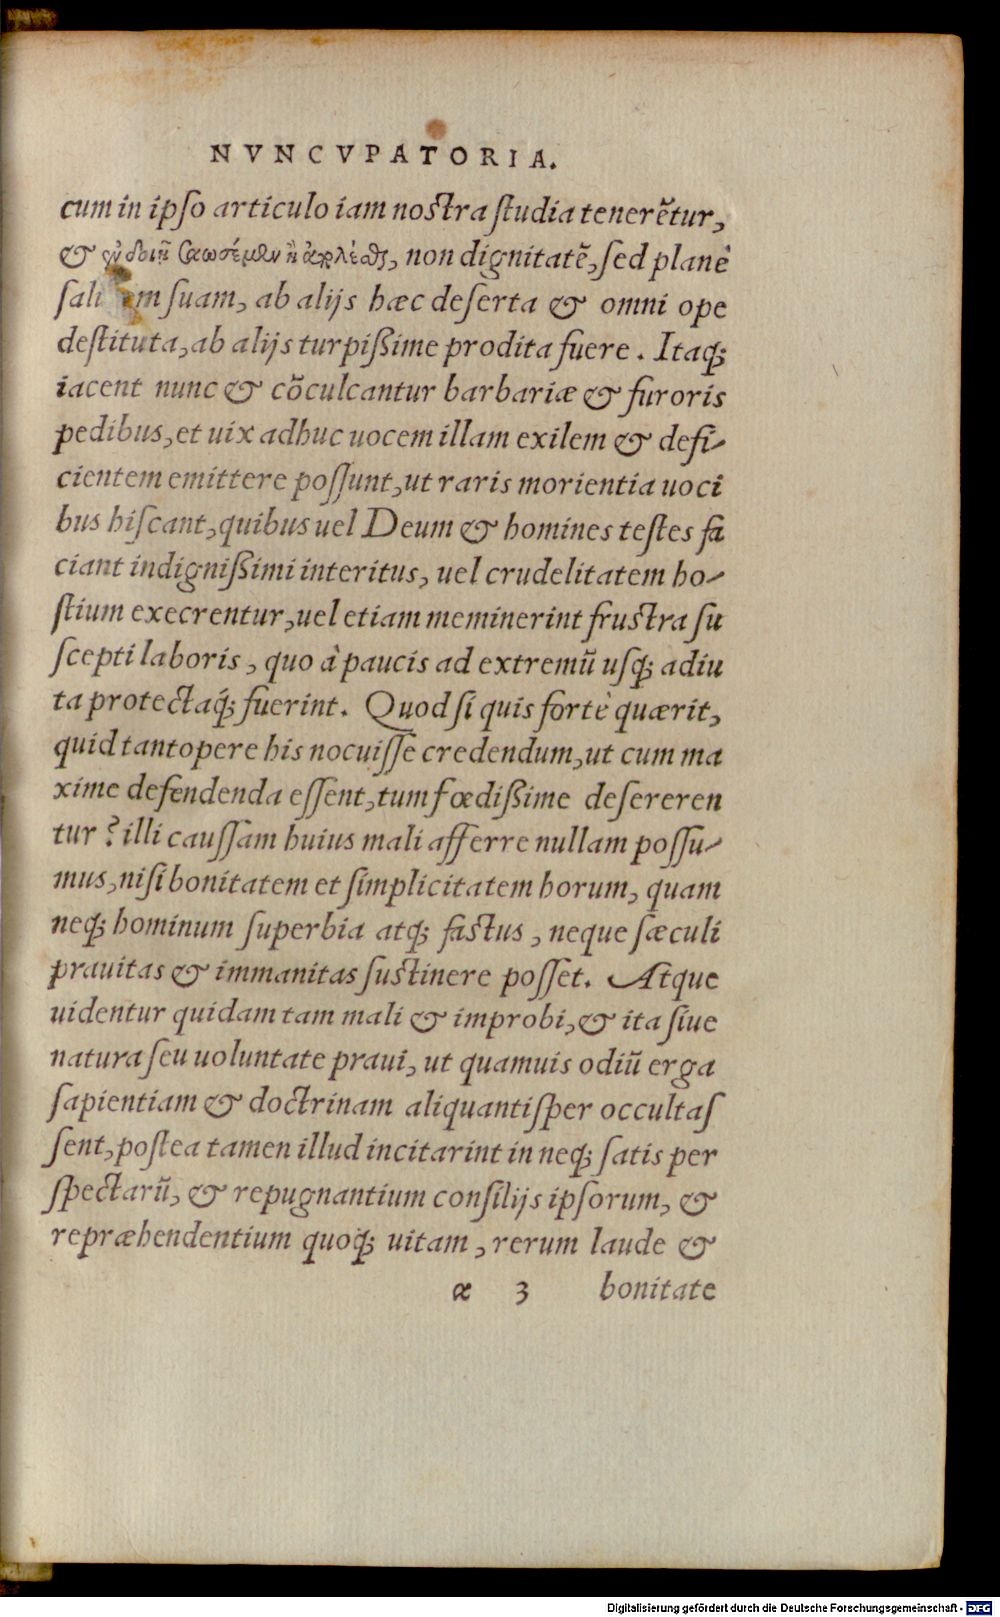 NVNCVPATORIA.
cum in ipſo articulo iam noſtra ſtudia tenerẽtur,
& ἢ, non dignitatẽ, ſed planè
ſuam, ab alijs hæc deſerta & omni ope
deſtituta, ab alijs turpißime prodita fuere. Itaq;
iacent nunc & cõculcantur barbariæ & furoris
pedibus, et uix adhuc uocem illam exilem & defi-
cientem emittere poſſunt, ut raris morientia uoci
bus hiſcant, quibus uel Deum & homines teſtes fa
ciant indignißimi interitus, uel crudelitatem ho-
ſtium execrentur, uel etiam meminerint fruſtra ſu
ſcepti laboris, quo à paucis ad extremũ uſq; adiu
ta protectaq́; fuerint. Quod ſi quis fortè quærit,
quid tantopere his nocuiſſe credendum, ut cum ma
xime defendenda eſſent, tum fœdißime deſereren
tur? illi cauſſam huius mali afferre nullam poſſu-
mus, niſi bonitatem et ſimplicitatem horum, quam
neq; hominum ſuperbia atq; faſtus, neque ſæculi
prauitas & immanitas ſuſtinere poſſet. Atque
uidentur quidam tam mali & improbi, & ita ſiue
natura ſeu uoluntate praui, ut quamuis odiũ erga
ſapientiam & doctrinam aliquantiſper occultaſ
ſent, poſtea tamen illud incitarint in neq; ſatis per
ſpectarũ, & repugnantium conſilijs ipſorum, &
repræhendentium quoq; uitam, rerum laude &
α 3 bonitate
Digitalisierung gefördert durch die Deutsche Forschungsgemeinschaft - DFG